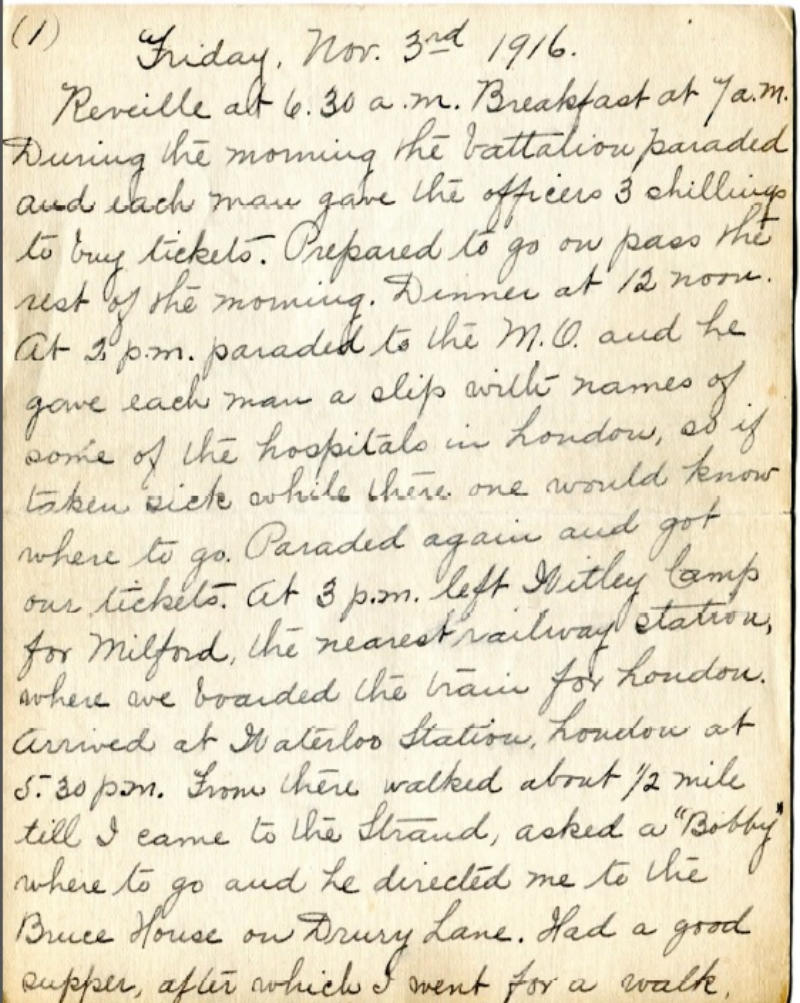 (1)
Friday, Nov. 3rd 1916.
Reveille at 6.30 a.m. Breakfast at 7 a.m.
During the morning the battalion paraded
and each man gave the officers 3 shillings
to buy tickets. Prepared to go on pass the
rest of the morning. Dinner at 12 noon.
At 2 p.m. paraded to the M.O. and he
gave each man a slip with names of
some of the hospitals in London, so if
taken sick while there one would know
where to go. Paraded again and got
our tickets. At 3 p.m. left Witley Camp
for Milford, the nearest railway station,
where we boarded the train for London.
Arrived at Waterloo Station, London at
5.30 p.m. From there walked about 1/2 mile
till I came to the Strand, asked a "Bobby"
where to go and he directed me to the
Bruce House on Drury Lane. Had a good
supper, after which I went for a walk.